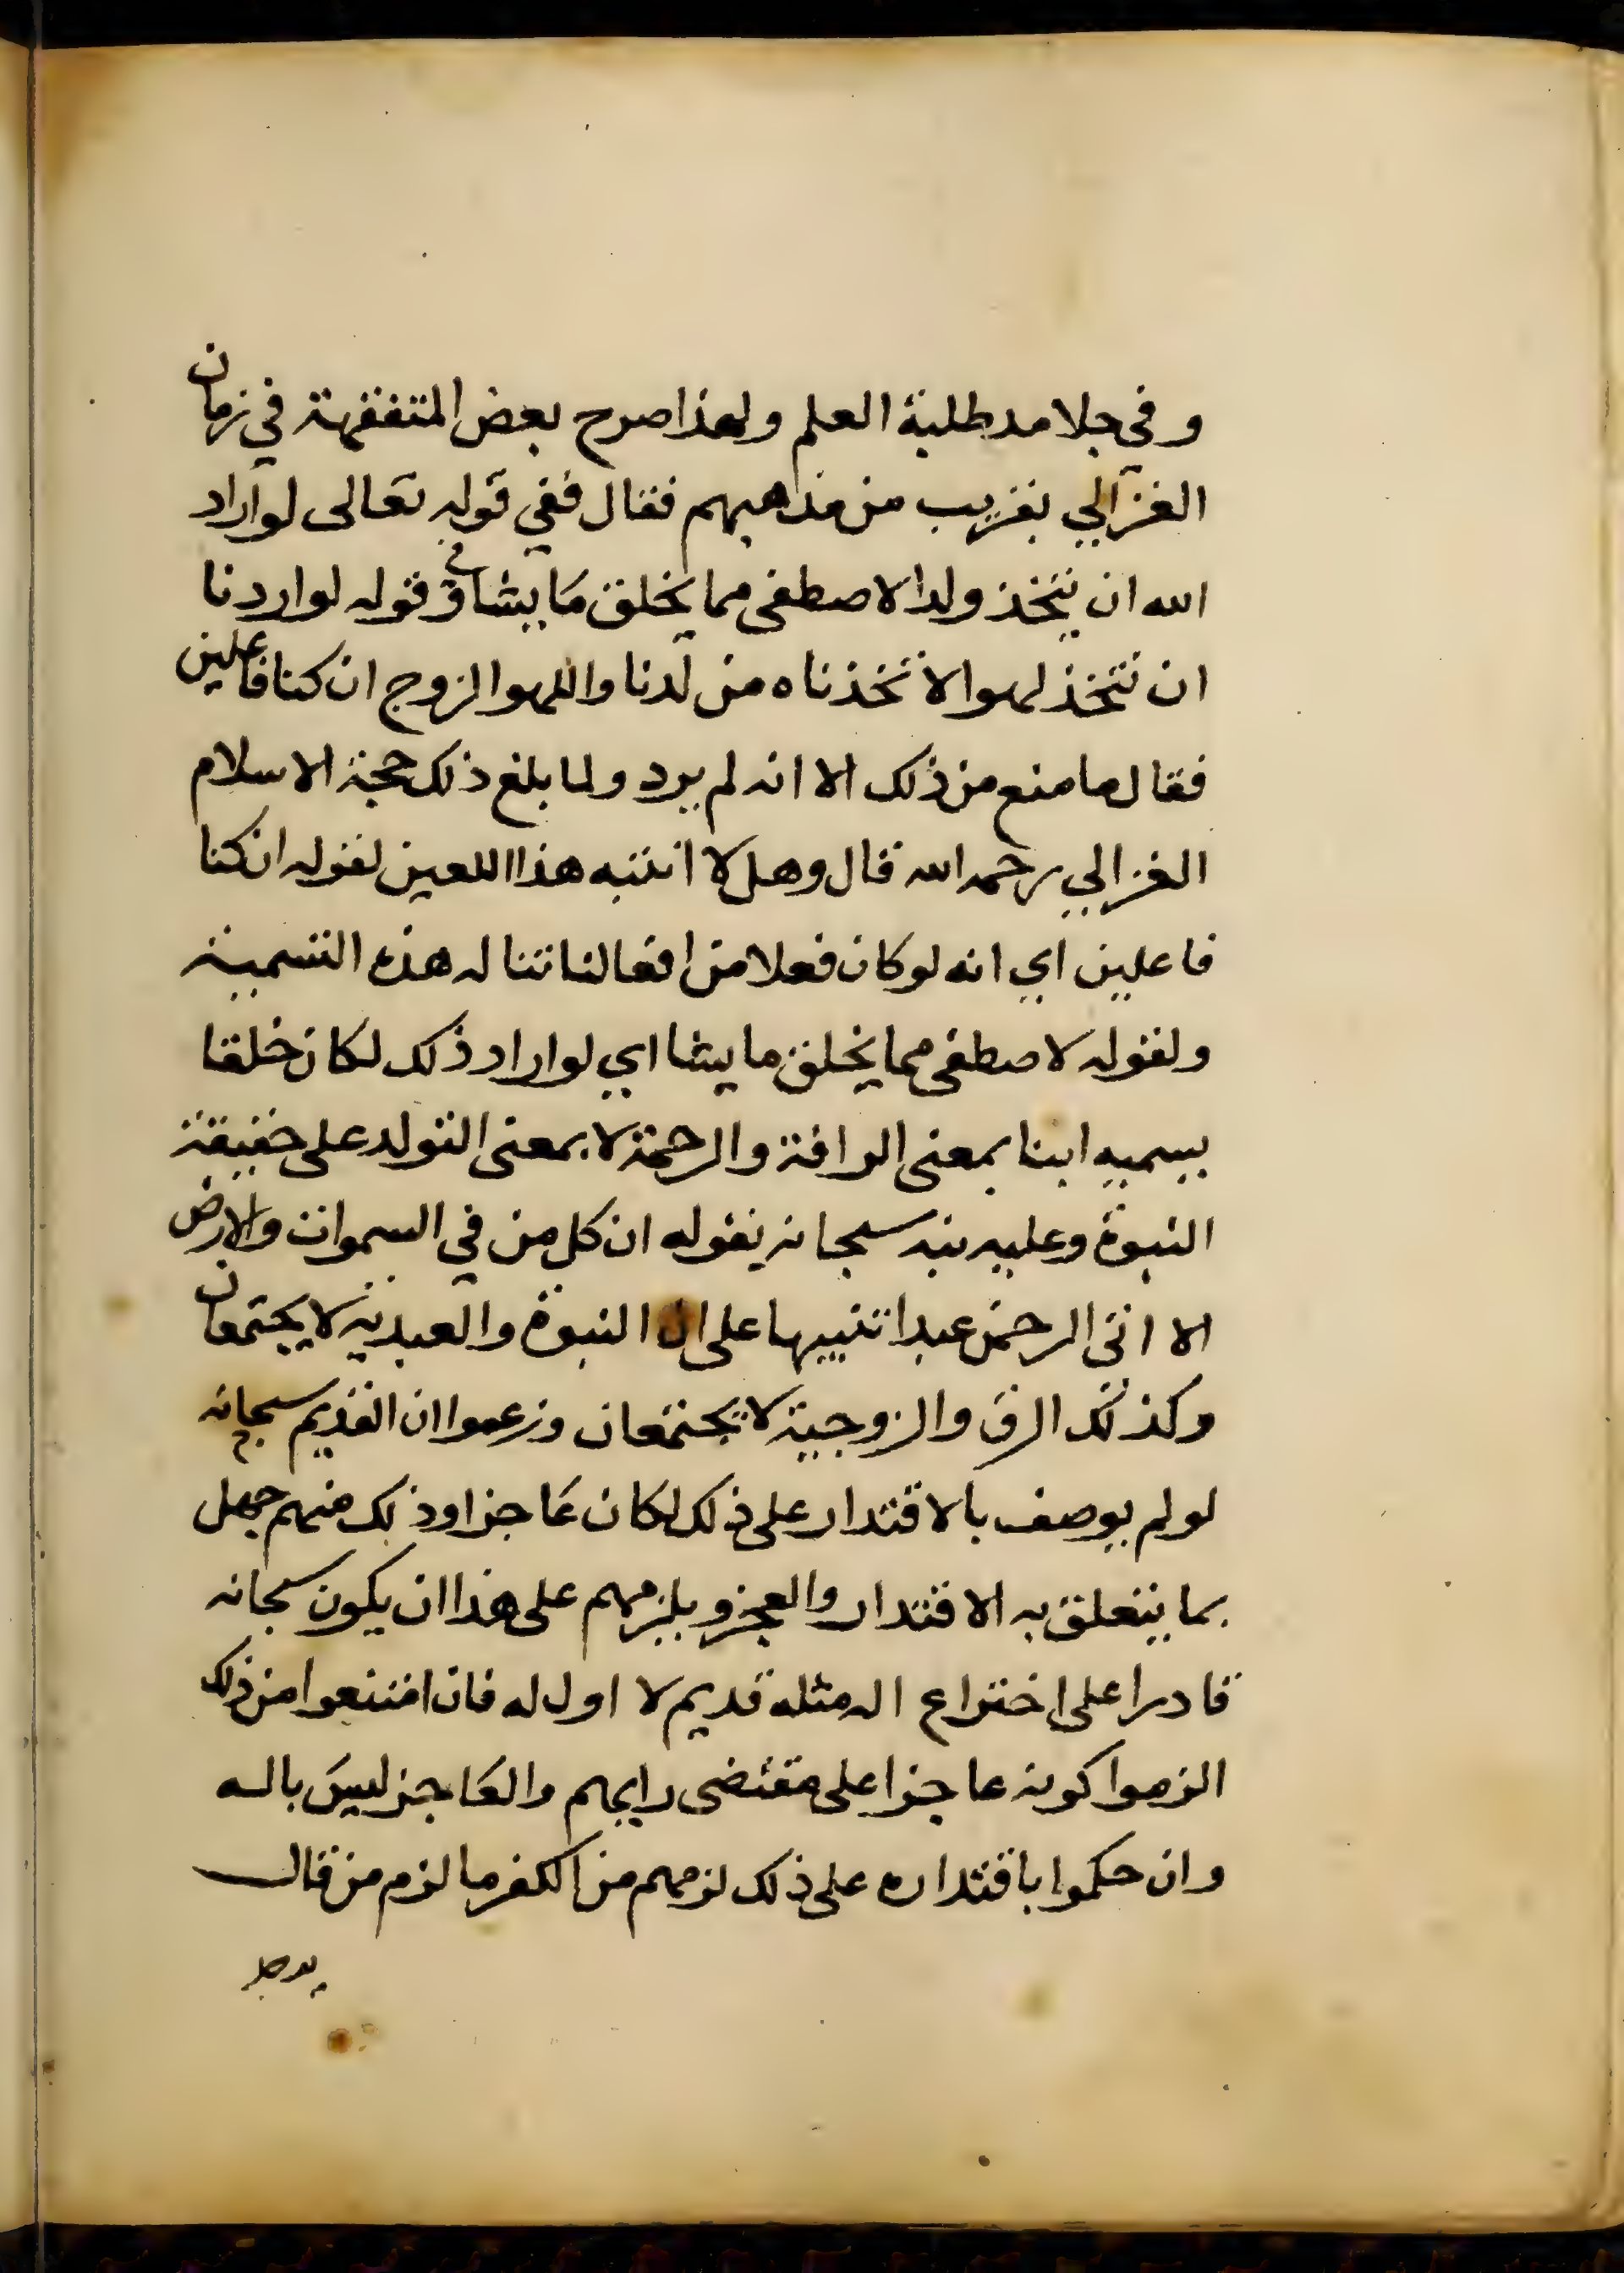 وفي جلامد طلبة العلم ولهذا صرح بعض المتفقهة في زمان
الغزالي بغريب من مذهبهم فقال ففي قوله تعالى لو اراد
الله ان يتخذ ولدا لاصطفى مما يخلق ما يشا وفي قوله لو اردنا
ان نتخذ لهوا لاتخذناه من لدنا واللهو الزوج ان كنا فاعلين
فقال ما منع من ذلك الا انه لم يرد ولما بلغ ذلك حجة الاسلام
الغزالي رحمه الله قال وهل لا انتبه هذا اللعين لقوله ان كنا
فاعلين اي انه لو كان فعلا من افعالنا تناله هذه التسمية
ولقوله لاصطفى مما يخلق ما يشا اي لو اراد ذلك لكان خلقا
يسميه ابنا بمعنى الرافة والرحمة لا بمعنى التولد على حقيقة
النبوة وعليه نبه سبحانه بقوله ان كل من في السموات والارض
الا اتى الرحمن عبدا تنبيها على ان النبوة والعبدية لا يجتمعان
وكذلك الرق والزوجية لا يجتمعان وزعموا ان القديم سبحانه
لو لم يوصف بالاقتدار على ذلك لكان عاجزا وذلك منهم جهل
بما يتعلق به الاقتدار والعجز ويلزمهم على هذا ان يكون سبحانه
قادرا على اختراع اله مثله قديم لا اول له فان امتنعوا من ذلك
الزموا كونه عاجزا على مقتضى رايهم والعاجز ليس باله
وان حكموا باقتداره على ذلك لزمهم من الكفر ما لزم من قال